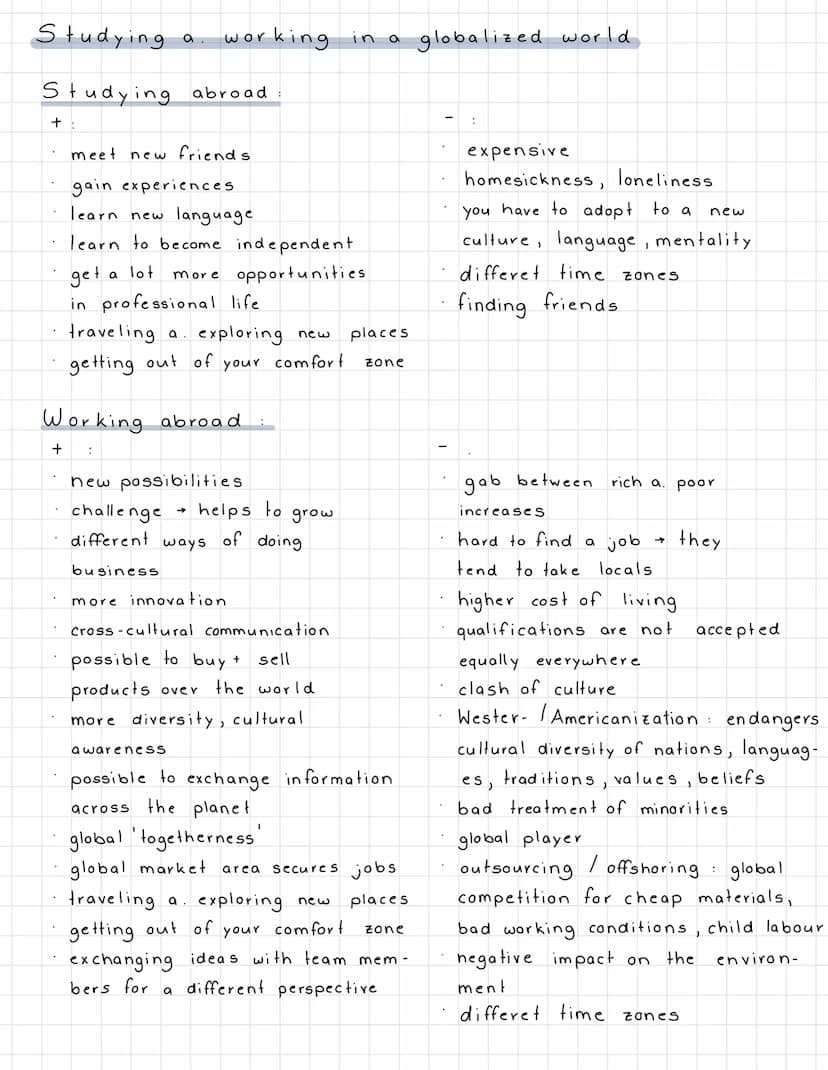 Studying a. working in a globalized world
Studying abroad:
+ :
· meet new friends
· gain experiences
· learn new language
· learn to become independent
· get a lot more opportunities
in professional life
· traveling a. exploring new places
· getting out of your comfort zone
- :
· expensive
· homesickness, loneliness
· you have to adopt to a new
culture, language, mentality
· differet time zones
· finding friends
Working abroad :
+ :
· new possibilities
· challenge → helps to grow
· different ways of doing
business
· more innovation
· cross-cultural communication
· possible to buy + sell
products over the world
· more diversity, cultural
awareness
· possible to exchange information
across the planet
· global 'togetherness'
· global market area secures jobs
· traveling a. exploring new places
· getting out of your comfort zone
· exchanging ideas with team mem-
bers for a different perspective
- .
· gab between rich a. poor
increases
· hard to find a job → they
tend to take locals
· higher cost of living
· qualifications are not accepted
equally everywhere
· clash of culture
· Wester- / Americanization : endangers
cultural diversity of nations, languag-
es, traditions, values, beliefs
· bad treatment of minorities
· global player
· outsourcing / offshoring : global
competition for cheap materials,
bad working conditions, child labour
· negative impact on the environ-
ment
· differet time zones